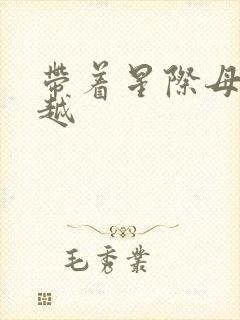 帶着星際母
越
毛秀業